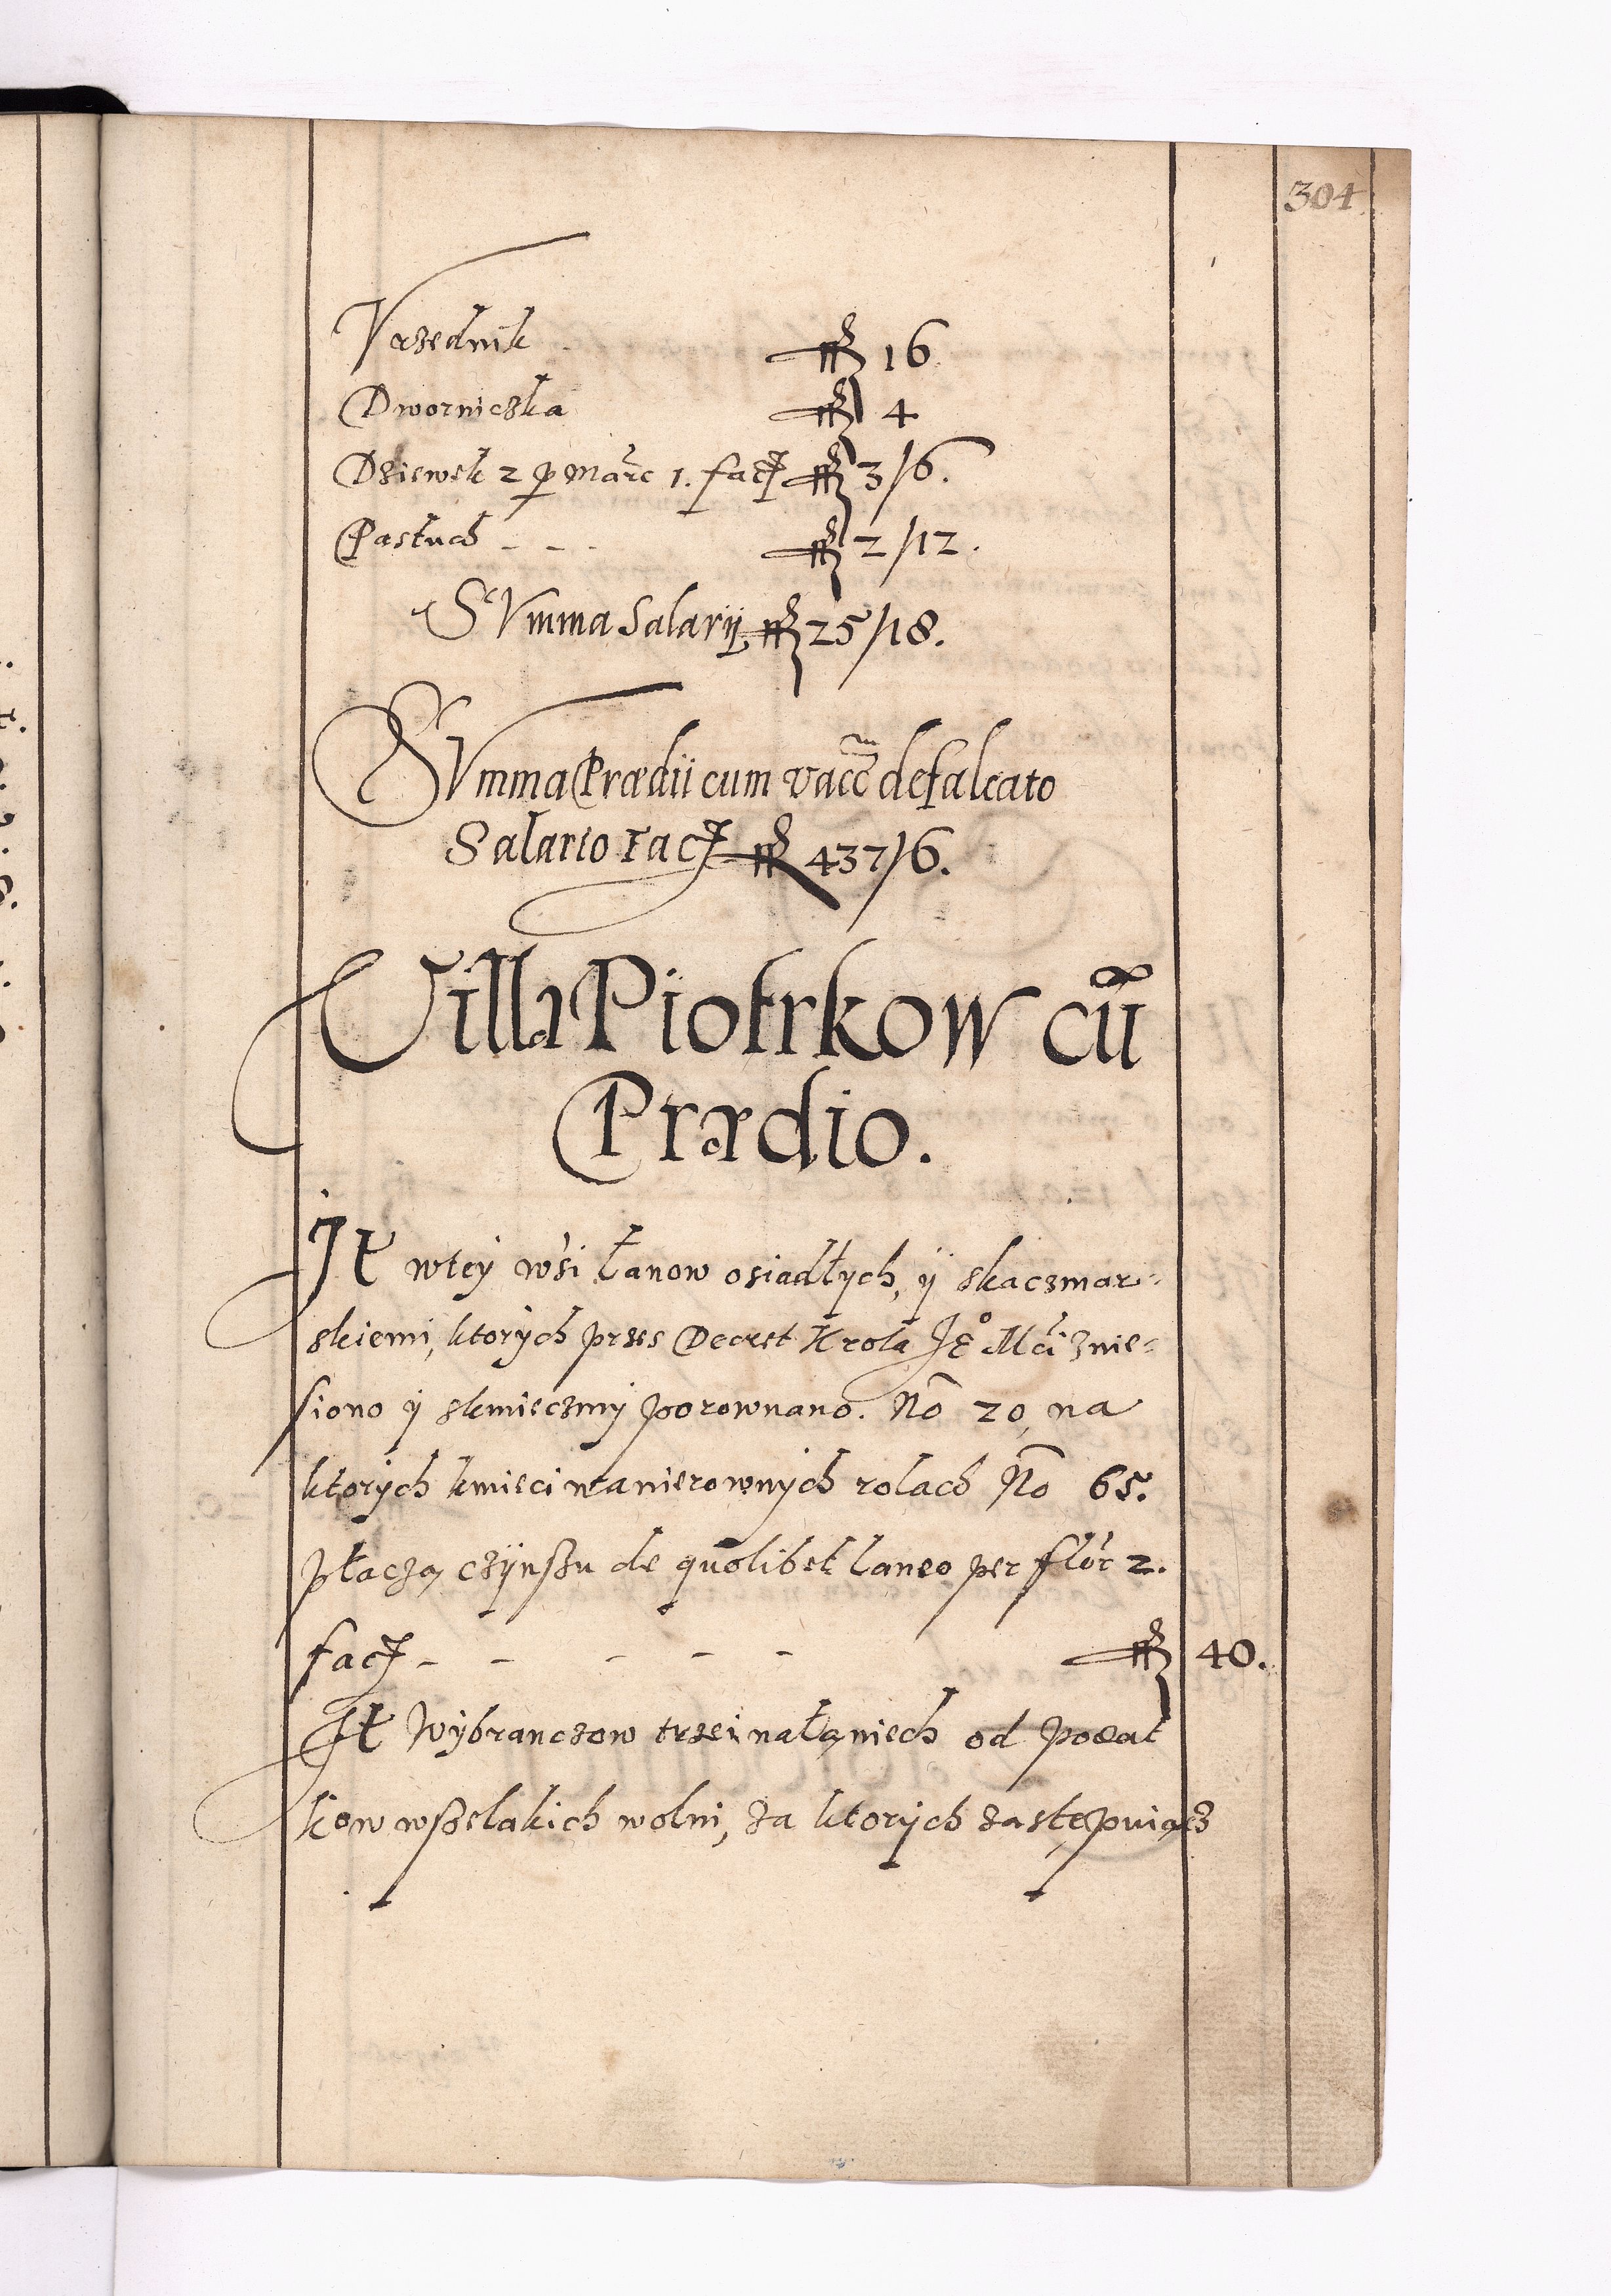 304
Vrzednik ff 16
Dworniczka ff 4
Dziewek 2 p Marc 1. facit ff 3/6.
Pastuch - - - ff 2/12.
SVmma Salarij ff 25/18.
SVmma Prædii cum vacc defalcato
Salario facit ff 437/6.
Villa Piotrkow cũ
Prædio.
It wtey wśi łanow osiadłych, ÿ skaczmar-
skiemi, ktorych przes Decret Krola Je° Mći znie-
siono ÿ skmieczmÿ porownano. No 20, na
ktorÿch kmieci nanierownÿch rolach No 65.
płaczą czÿnszu de quolibet laneo per flor 2.
facit - - - - - ff 40.
It Wÿbranczow trzei nałaniech od podat
kow wszelakich wolni, za ktorÿch zastępuiącz